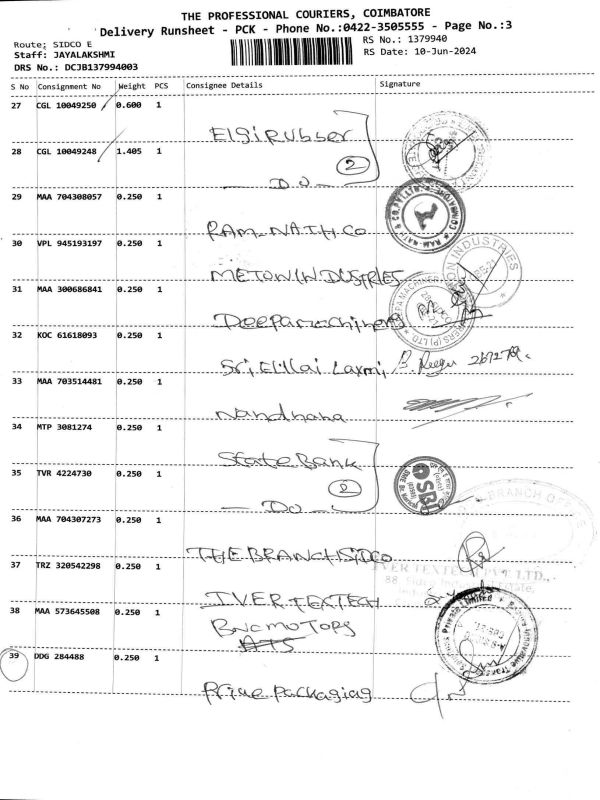 THE PROFESSIONAL COURIERS, COIMBATORE
Delivery Runsheet - PCK - Phone No.:0422-3505555 - Page No.:3
Route: SIDCO E
Staff: JAYALAKSHMI
DRS No.: DCJB137994003
RS No.: 1379940
RS Date: 10-Jun-2024
S No Consignment No Weight PCS Consignee Details Signature
27 CGL 10049250 0.600 1
Elgi Rubber
28 CGL 10049248 1.405 1
2
Do
29 MAA 704308057 0.250 1
RAM-NATH CO
30 VPL 945193197 0.250 1
METON INDUSTRIES
31 MAA 300686841 0.250 1
Deepamachiners
32 KOC 61618093 0.250 1
Sri Ellai Laxmi
33 MAA 703514481 0.250 1
Nandhana
34 MTP 3081274 0.250 1
State Bank
35 TVR 4224730 0.250 1
2
Do
SBI
36 MAA 704307273 0.250 1
BRANCH
THE BRANCH SIDCO
37 TRZ 320542298 0.250 1
88 Sidco
IVER TEXTECH
38 MAA 573645508 0.250 1
BNC MOTORS
ATS
39 DDG 284488 0.250 1
Prime Packaging